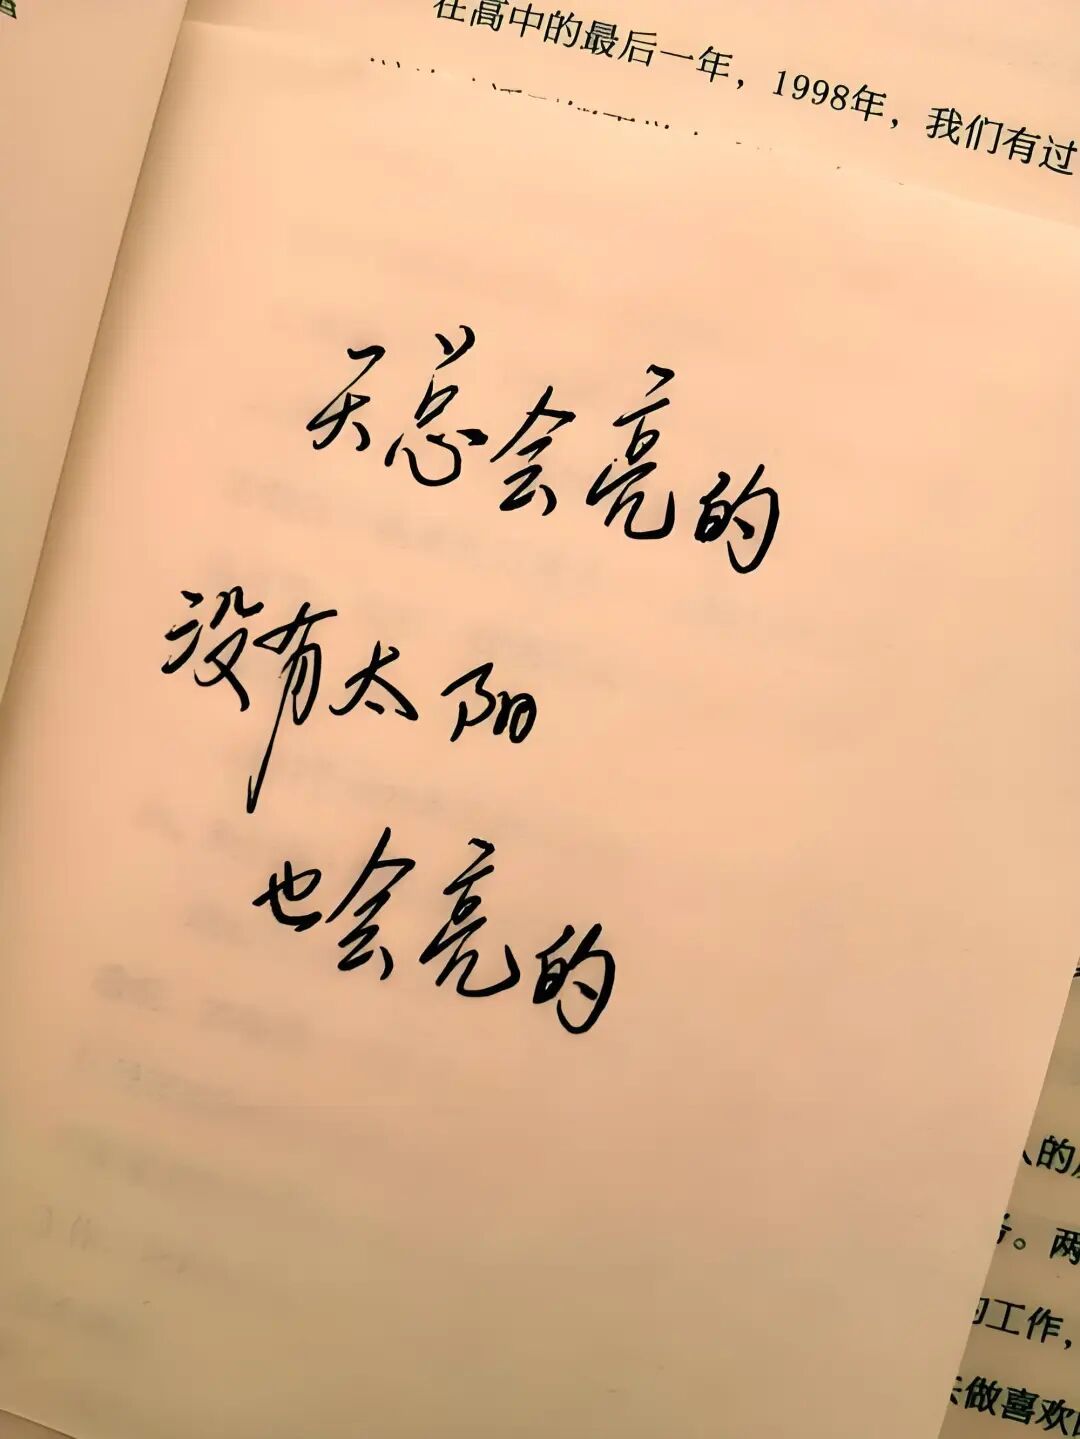 在高中的最后一年，1998年，我们有过
天总会亮的
没有太阳
也会亮的
的
。两
的工作，
去做喜欢